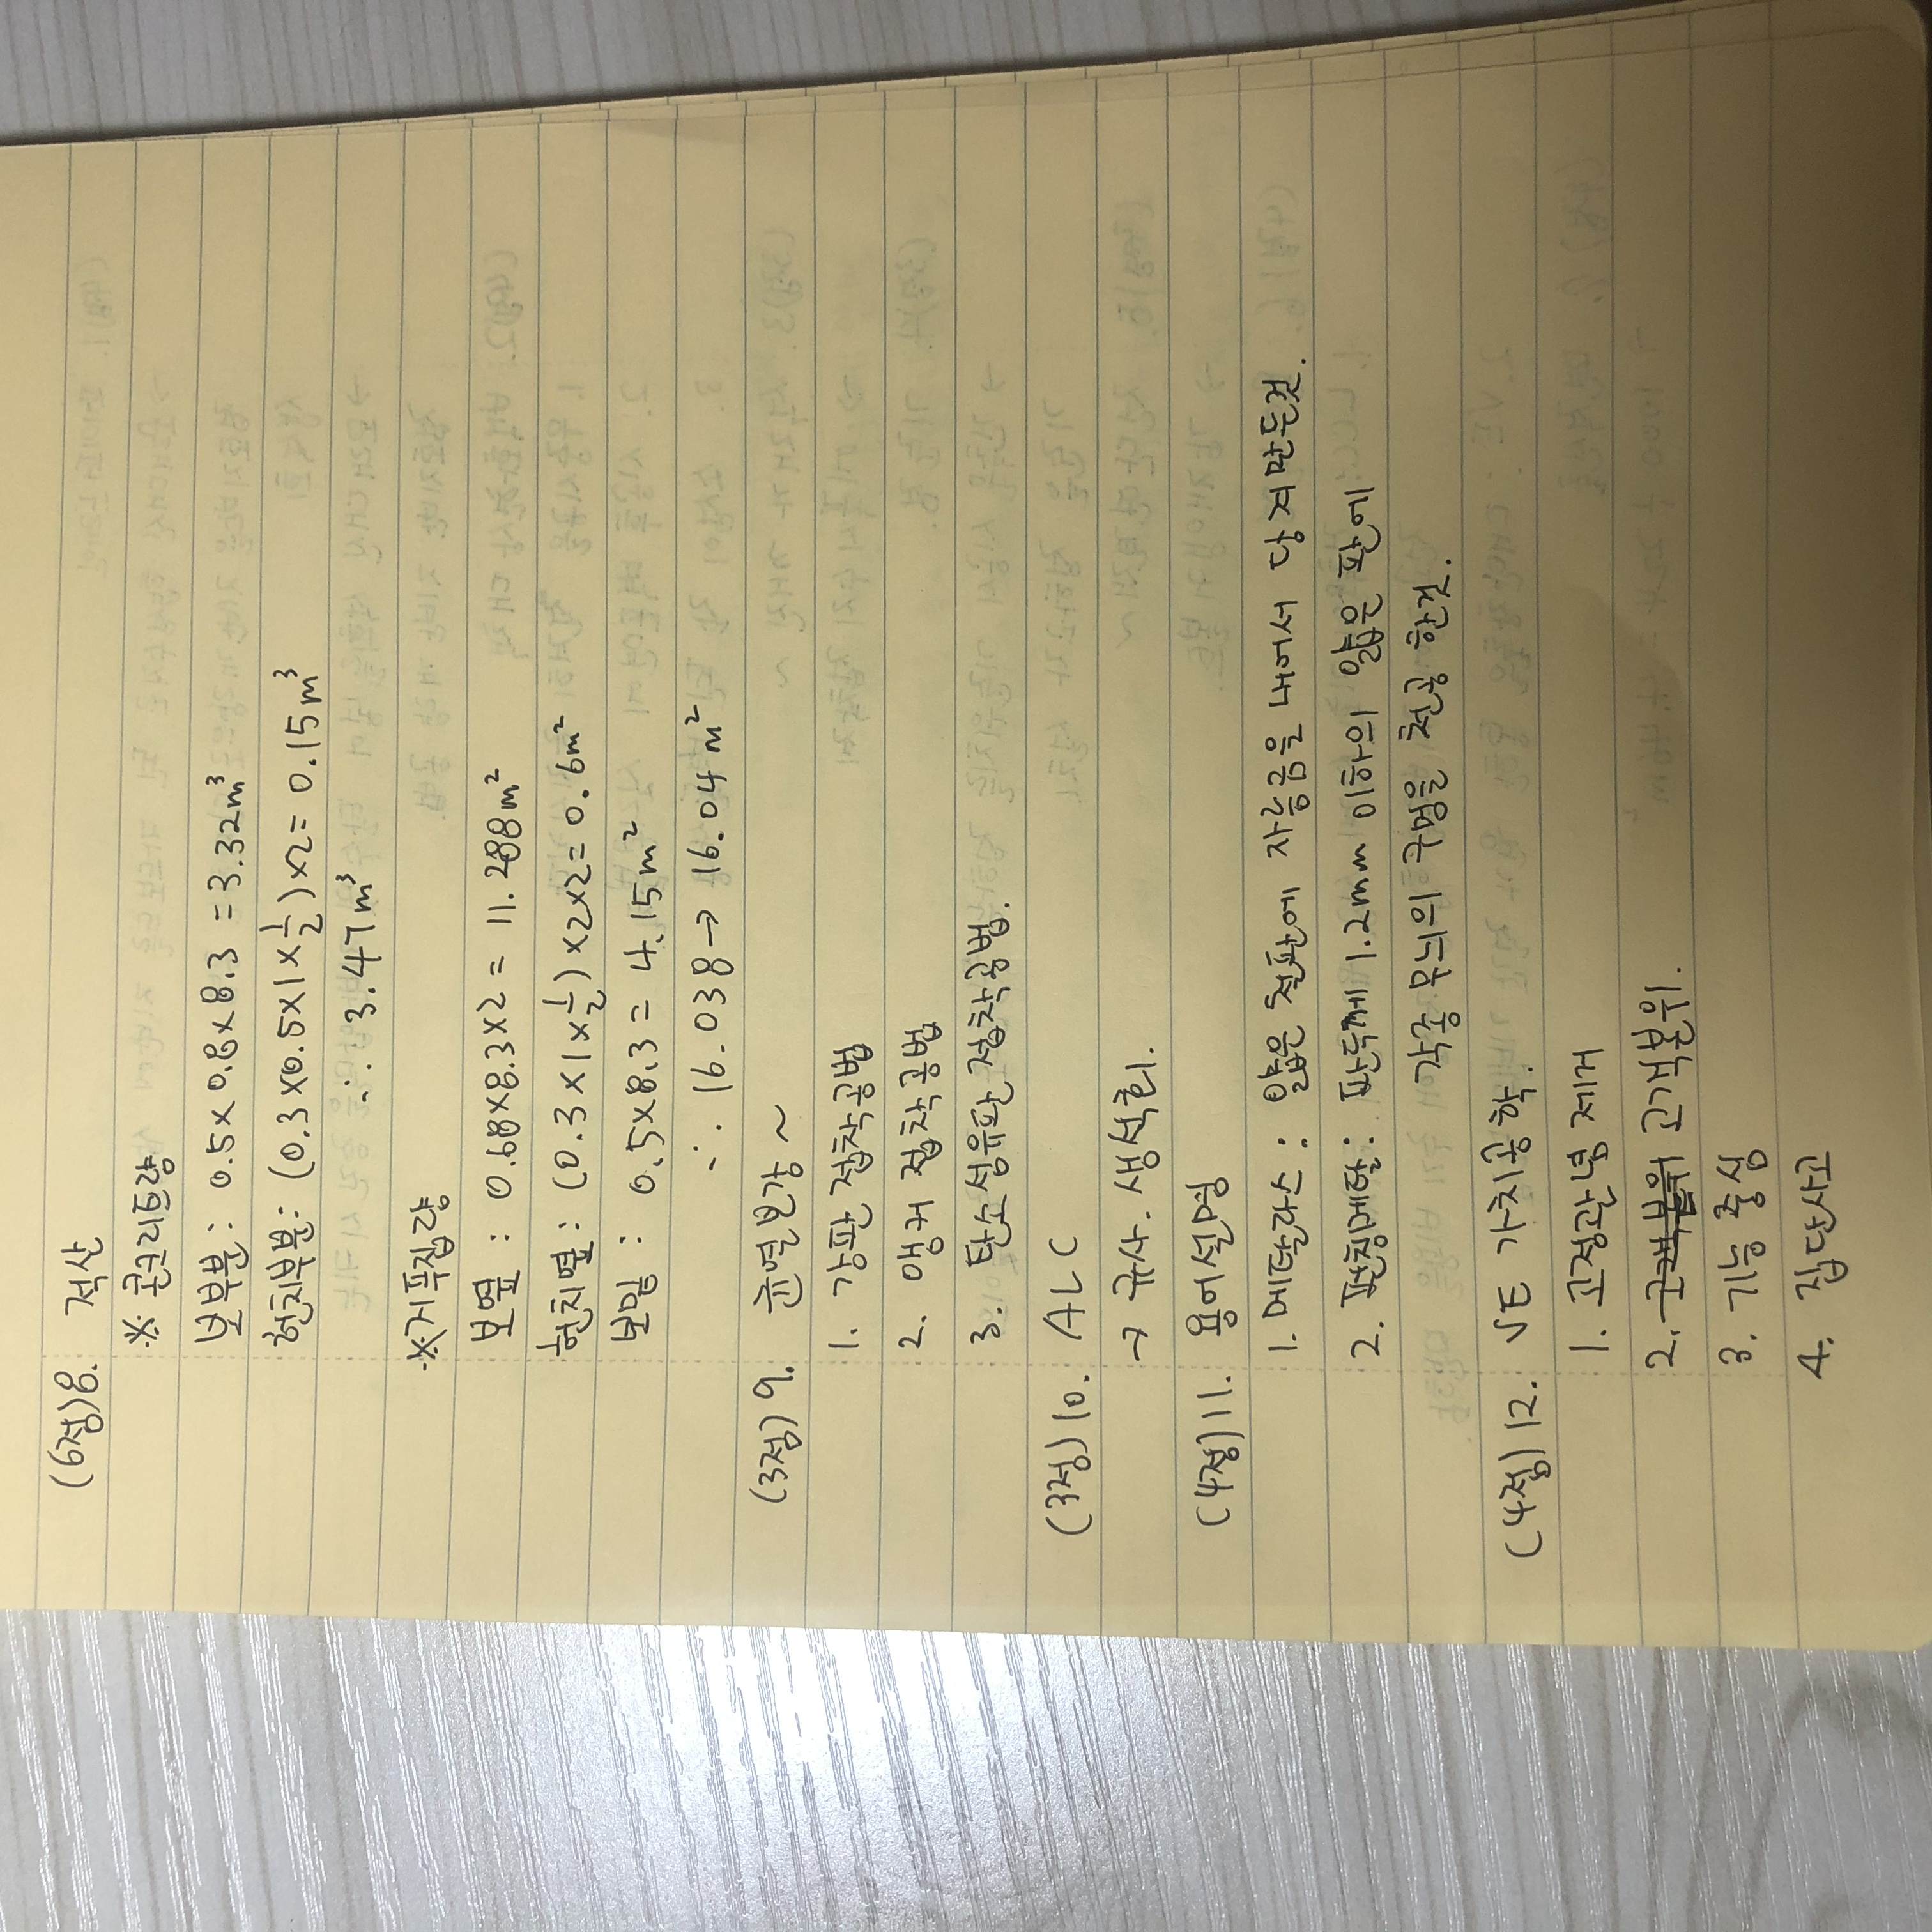 (6점)8. 적산
※ 콘크리트량
보부분 : 0.5×0.8×8.3 = 3.32m³
헌치부분 : (0.3×0.5×1×1/2)×2 = 0.15m³
∴ 3.47m³
※거푸집량
보옆 : 0.68×8.3×2 = 11.288m²
헌치옆 : (0.3×1×1/2)×2×2 = 0.6m²
보밑 : 0.5×8.3 = 4.15m²
∴ 16.038 → 16.04m²
(3점) 9. 균열보강 ~
1. 강판 접착공법
2. 앵커 접착공법
3. 탄소섬유판 접착공법.
(3점) 10. ALC
→ 규사. 생석회.
(4점) 11. 용어설명
1. 메탈라스 : 얇은 철판에 자름금을 내어서 당겨만든것.
2. 펀칭메탈 : 판두께 1.2mm 이하의 얇은 판에
각종 무늬의 구멍을 천공 한것.
(4점) 12. VE 가치공학.
1. 고정관념 제거
2. 고객본위.
3. 기능 중심
4. 집단사고